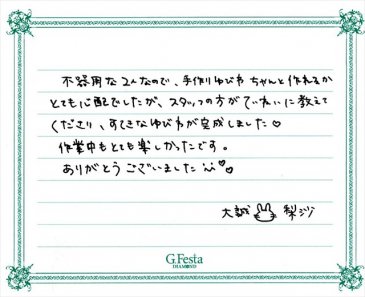 不器用な2人なので、手作りゆびわ ちゃんと作れるか
とても心配でしたが、スタッフの方がていねいに教えて
くださり、すてきなゆびわが完成しました♡
作業中もとても楽しかったです。
ありがとうございました
大誠 梨沙
G.Festa
DIAMOND